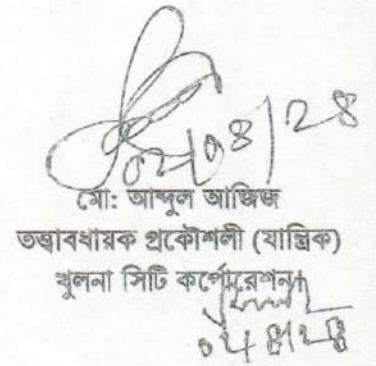 মো: আব্দুল আজিজ
তত্ত্বাবধায়ক প্রকৌশলী (যান্ত্রিক)
খুলনা সিটি কর্পোরেশন।